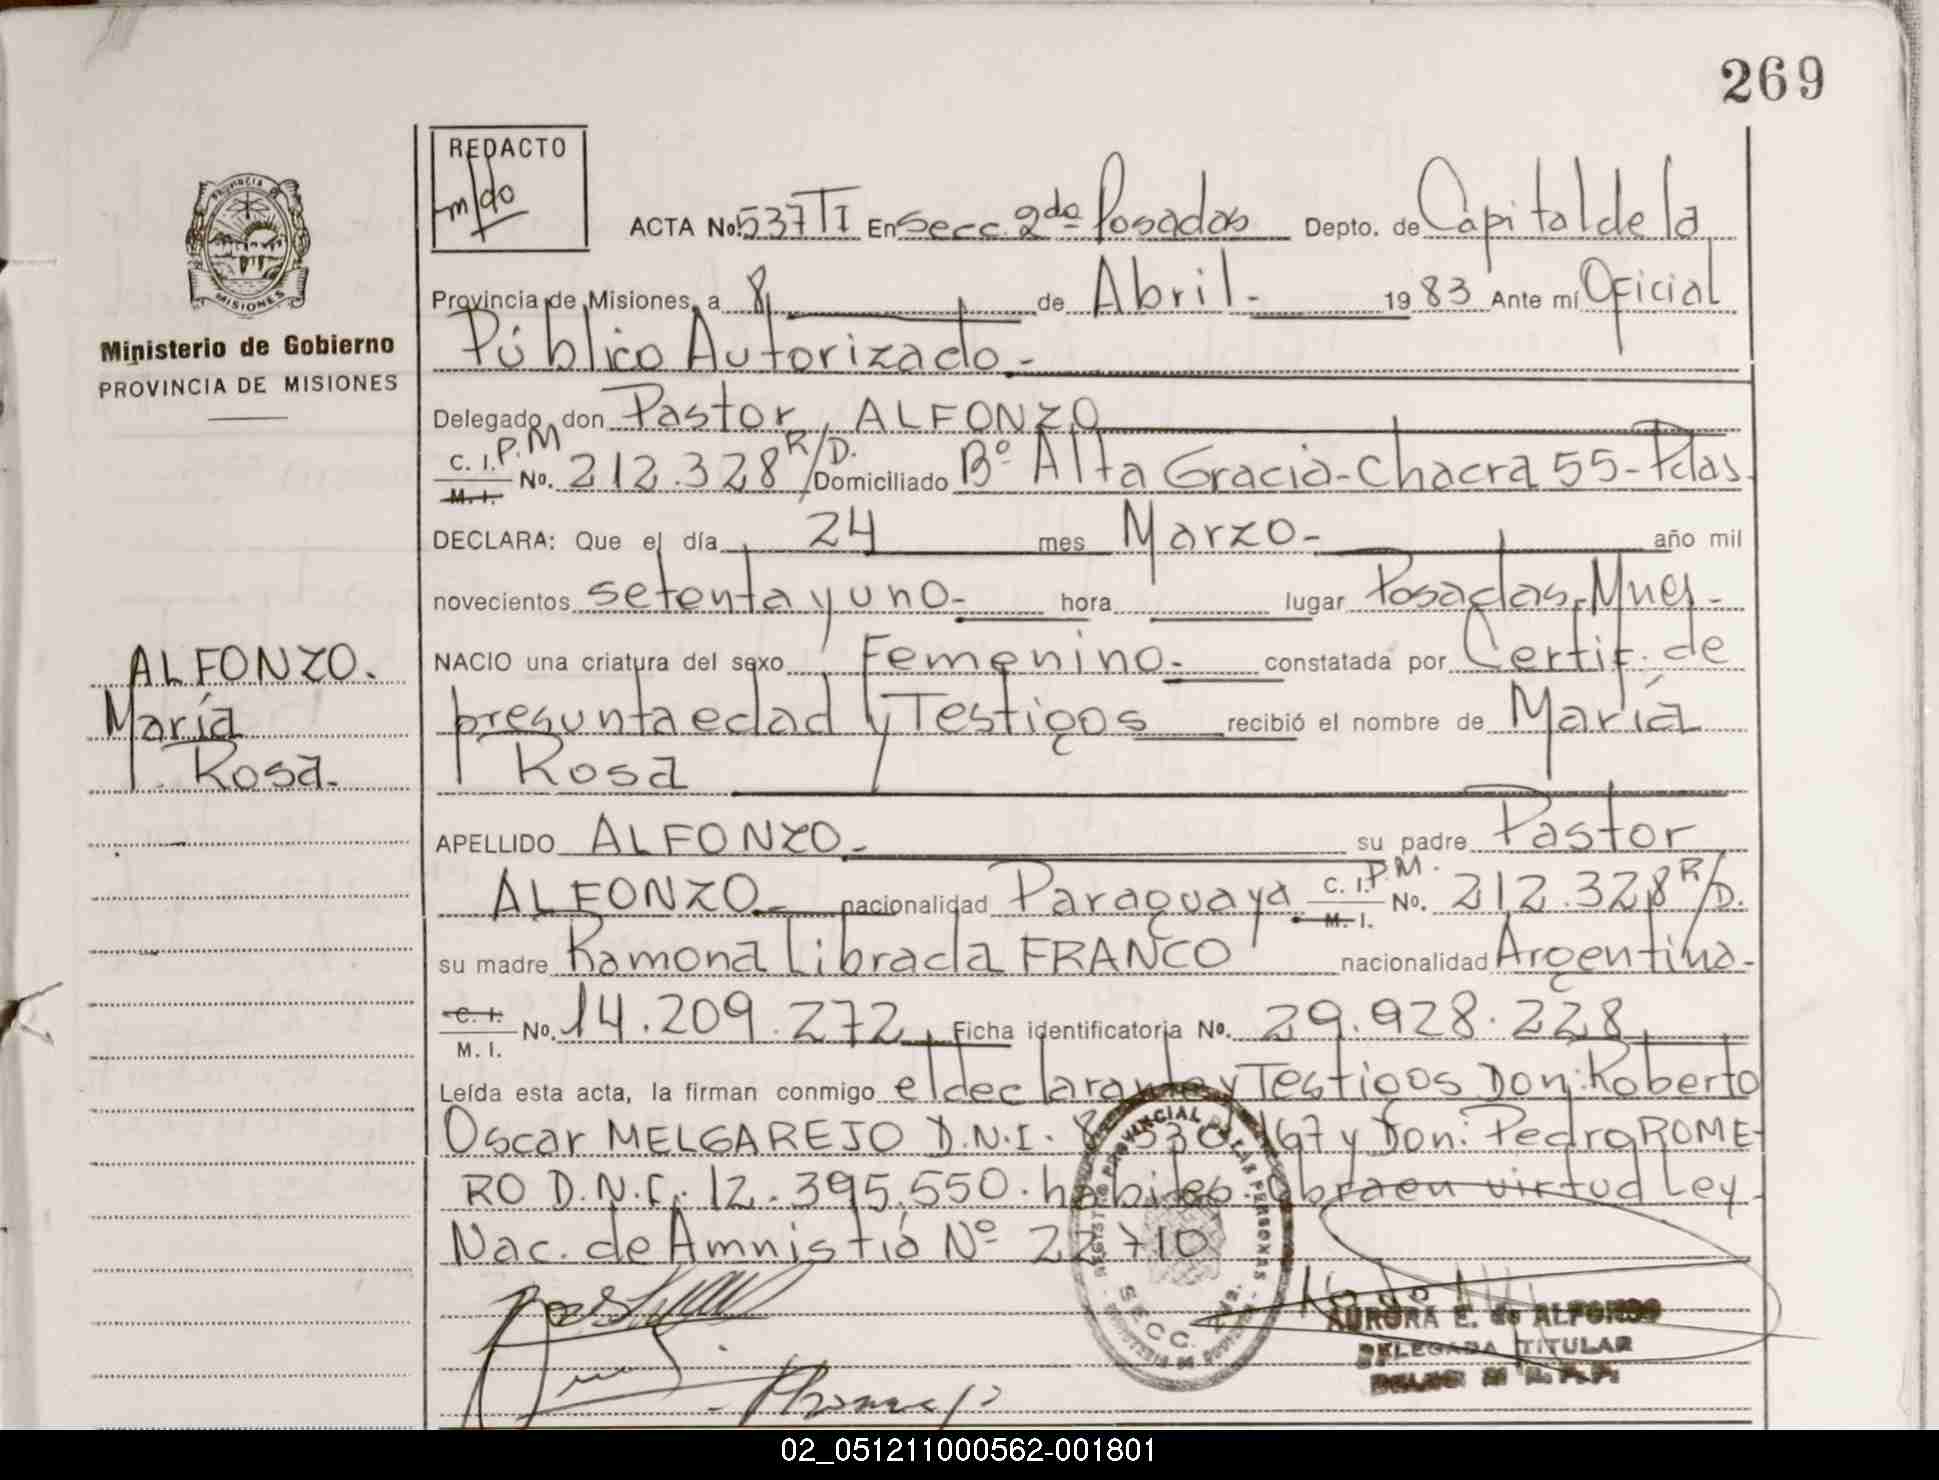 269
REDACTO
ACTA No. 537 TI En Secc. 2da Posadas Depto. de Capital de la
Provincia de Misiones, a 8 de Abril - 1983 Ante mí Oficial
Público Autorizado -
Ministerio de Gobierno
PROVINCIA DE MISIONES
PROVINCIA
MISIONES
Delegado, don Pastor, ALFONZO
C. I. P.M No. 212.328 R/D. Domiciliado Bº Alta Gracia - Chacra 55 - Pdas.
M. I.
DECLARA: Que el día 24 mes Marzo - año mil
novecientos setenta y uno - hora lugar Posadas, Mnes -
ALFONZO.
María
Rosa.
NACIO una criatura del sexo Femenino - constatada por Certif. de
presunta edad y Testigos recibió el nombre de María
Rosa
APELLIDO ALFONZO - su padre Pastor
ALFONZO - nacionalidad Paraguaya C. I. P.M. No. 212.328 R/D.
M. I.
su madre Ramona Librada FRANCO nacionalidad Argentina -
C. I. No. 14.209.272 Ficha identificatoria No. 29.928.228
M. I.
Leída esta acta, la firman conmigo el declarante y Testigos Don: Roberto
Oscar MELGAREJO D.N.I. 8.530.167 y Don: Pedro ROME-
RO D.N.I. 12.395.550. habiles. Obra en virtud Ley
Nac. de Amnistiá Nº 22710
REGISTRO PROVINCIAL DE LAS PERSONAS
SECC. 2da.
AURORA E. de ALFONSO
DELEGADA TITULAR
02_051211000562-001801